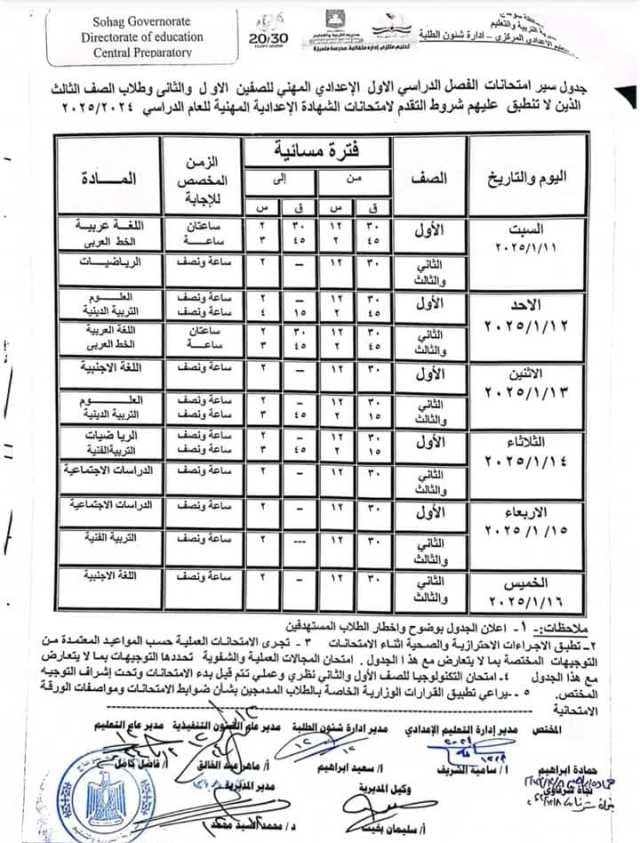 Sohag Governorate
Directorate of education
Central Preparatory
20 30
التربية والتعليم
الإعدادي المركزي - ادارة شئون الطلبة
جدول سير امتحانات الفصل الدراسي الاول الإعدادي المهني للصفين الاول والثانى وطلاب الصف الثالث
الذين لا تنطبق عليهم شروط التقدم لامتحانات الشهادة الإعدادية المهنية للعام الدراسي ٢٠٢٥/٢٠٢٤
اليوم والتاريخ الصف فترة مسائية الزمن المخصص للإجابة المادة
من إلى
ق س ق س
السبت ٢٠٢٥/١/١١
الأول ٣٠ ١٢ ٣٠ ٢ ساعتان اللغة عربية
٤٥ ٢ ٤٥ ٣ ساعة الخط العربى
الثاني والثالث ٣٠ ١٢ – ٢ ساعة ونصف الرياضيات
الاحد ٢٠٢٥/١/١٢
الأول ٣٠ ١٢ – ٢ ساعة ونصف العلوم
٤٥ ٢ ١٥ ٤ ساعة ونصف التربية الدينية
الثاني والثالث ٣٠ ١٢ ٣٠ ٢ ساعتان اللغة العربية
٤٥ ٢ ٤٥ ٣ ساعة الخط العربى
الاثنين ٢٠٢٥/١/١٣
الأول ٣٠ ١٢ – ٢ ساعة ونصف اللغة الاجنبية
الثاني والثالث ٣٠ ١٢ – ٢ ساعة ونصف العلوم
١٥ ٢ ٤٥ ٣ ساعة ونصف التربية الدينية
الثلاثاء ٢٠٢٥/١/١٤
الأول ٣٠ ١٢ – ٢ ساعة ونصف الرياضيات
١٥ ٢ ٤٥ ٣ ساعة ونصف التربية الفنية
الثاني والثالث ٣٠ ١٢ – ٢ ساعة ونصف الدراسات الاجتماعية
الاربعاء ٢٠٢٥/١/١٥
الأول ٣٠ ١٢ – ٢ ساعة ونصف الدراسات الاجتماعية
الثاني والثالث ٣٠ ١٢ --- ٢ ساعة ونصف التربية الفنية
الخميس ٢٠٢٥/١/١٦
الثاني والثالث ٣٠ ١٢ – ٢ ساعة ونصف اللغة الاجنبية
ملاحظات:- ١- اعلان الجدول بوضوح واخطار الطلاب المستهدفين
٢- تطبق الاجراءات الاحترازية والصحية اثناء الامتحانات ٣- تجرى الامتحانات العملية حسب المواعيد المعتمدة من
التوجيهات المختصة بما لا يتعارض مع هذا الجدول . امتحان المجالات العملية والشفوية تحددها التوجيهات بما لا يتعارض
مع هذا الجدول ٤- امتحان التكنولوجيا للصف الأول والثاني نظري وعملي تتم قبل بدء الامتحانات وتحت إشراف التوجيه
المختص. ٥- يراعي تطبيق القرارات الوزارية الخاصة بالطلاب المدمجين بشأن ضوابط الامتحانات ومواصفات الورقة
الامتحانية
المختص مدير إدارة التعليم الإعدادي مدير ادارة شئون الطلبة مدير عام الشئون التنفيذية مدير عام التعليم
حمادة ابراهيم أ/ سامية الشريف أ/ سعيد ابراهيم أ/ ماهر عبد الخالق أ/ فاضل كامل
نجاة شرقاوي
وكيل المديرية مدير المديرية
أ/ سليمان بخيت د/ محمد السيد محمد